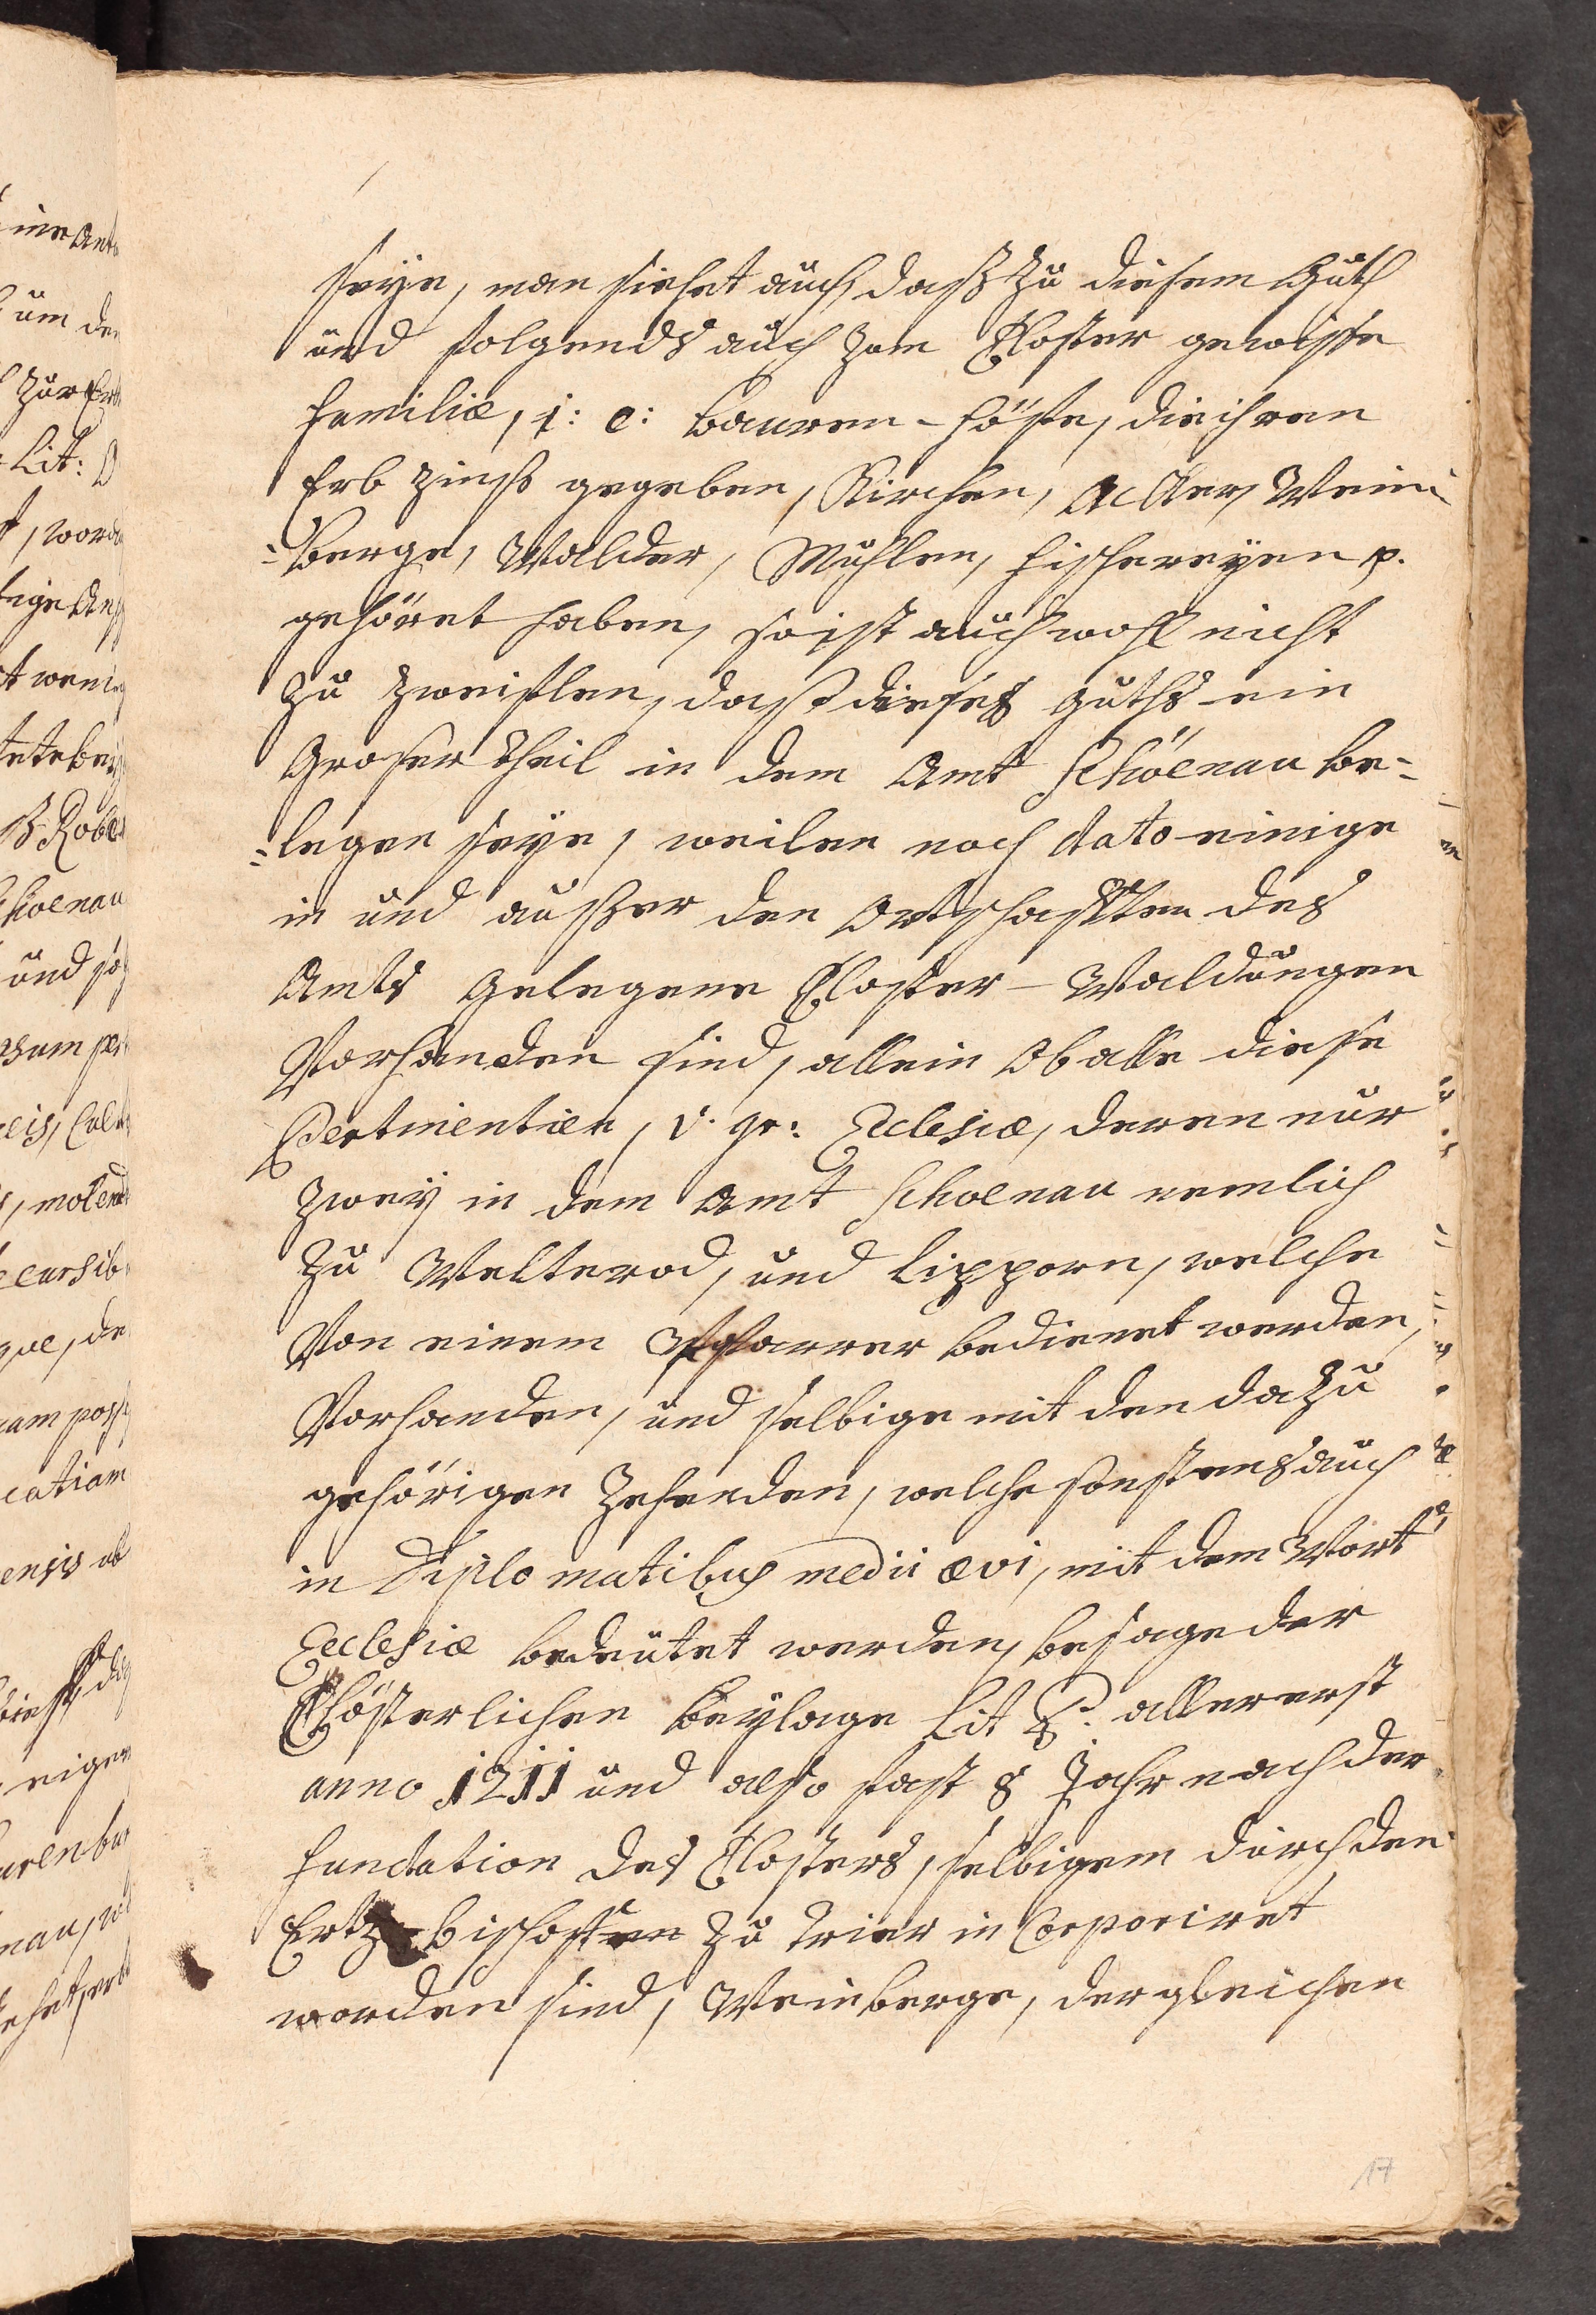 seye, man siehet auch, daß zu diesem Guth
und folgends auch zum Closter gewisse
familiæ, i: e: bauren-höffe, die ihren
Erb Zinß gegeben, Kirchen, Acker, Wein
=berge, Wälder, Mühlen, fischereyen p.
gehöret haben, so ist auch wohl nicht
zu zweifflen, daß dieses guths ein
Groser theil in dem Amt Schöenau be-
=legen seye, weilen noch dato einige
in und außer den Ortschafften des
Amts Gelegene Closter-Waldungen
Vorhanden sind, allein ob alle diese
Pertinentien, v. gr: Ecclesiæ, deren nur
zweÿ in dem Amt Schoenau nemlich
Zu Welterod, und Lipporn, welche
Von einem Pfarrer bedienet werden,
Vorhanden, und selbige mit den dazu
gehörigen Zehenden, welche sonstens auch
in Diplomatibus medii ævi, mit dem Wort
Ecclesiæ bedeutet werden, besage der
Clösterlichen Beylage Lit P. allererst
anno 1211 und also fast 8 Jahr nach der
fundation des Closters, selbigem durch den
Ertz bischoffen zu Trier in Corporiret
worden sind, Weinberge, dergleichen
17